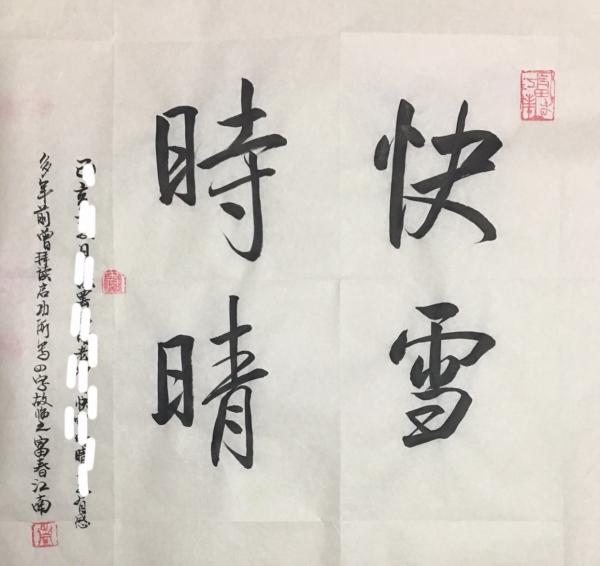 快雪
時晴
己亥 日 快 晴 有感
多年前曾拜读启功所写四字故临之富春江南